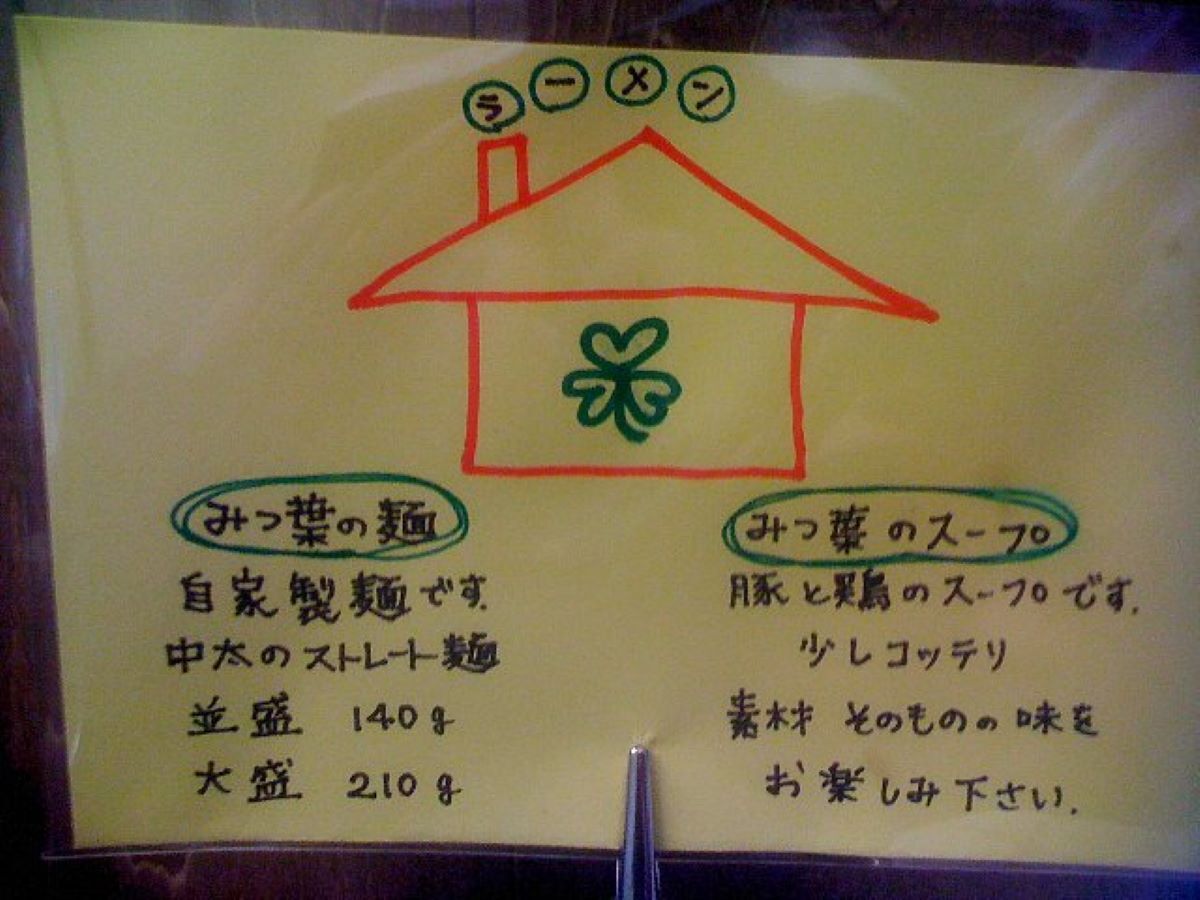 ラーメン
みつ葉の麺
自家製麺です.
中太のストレート麺
並盛 140g
大盛 210g
みつ葉のスープ
豚と鶏のスープです.
少しコッテリ
素材そのものの味を
お楽しみ下さい.